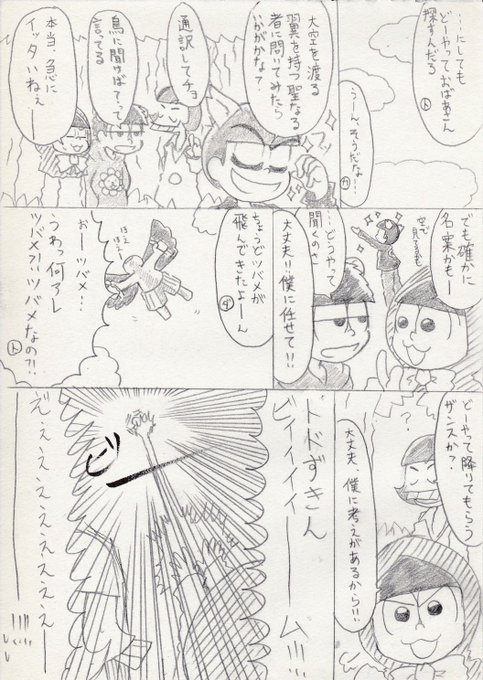 …にしても
どーやっておばあさん
探すんだろ
ト
うーん、そうだな…
カ
大空を渡る
翼を持つ聖なる
者に問いてみたら
いかがかな?
通訳してチョ
鳥に聞けば?って
言ってる
本当、急に
イッタいねぇ
でも確かに
名案かもー
空で
見てるし
…どうやって
聞くのさ
大丈夫!!僕に任せて!!
ちょうどツバメが
飛んできたよーん
ダ
はえ
はえー
おーツバメ!
うわっ何アレ
ツバメ?!!ツバメなの?!!
ト
どーやって降りてもらう
ザンスか?
?
大丈夫、僕に考えがあるから!!
トドずきん
ビイイイイーーム!!!
ビーッ
ええええええええー
!!!!